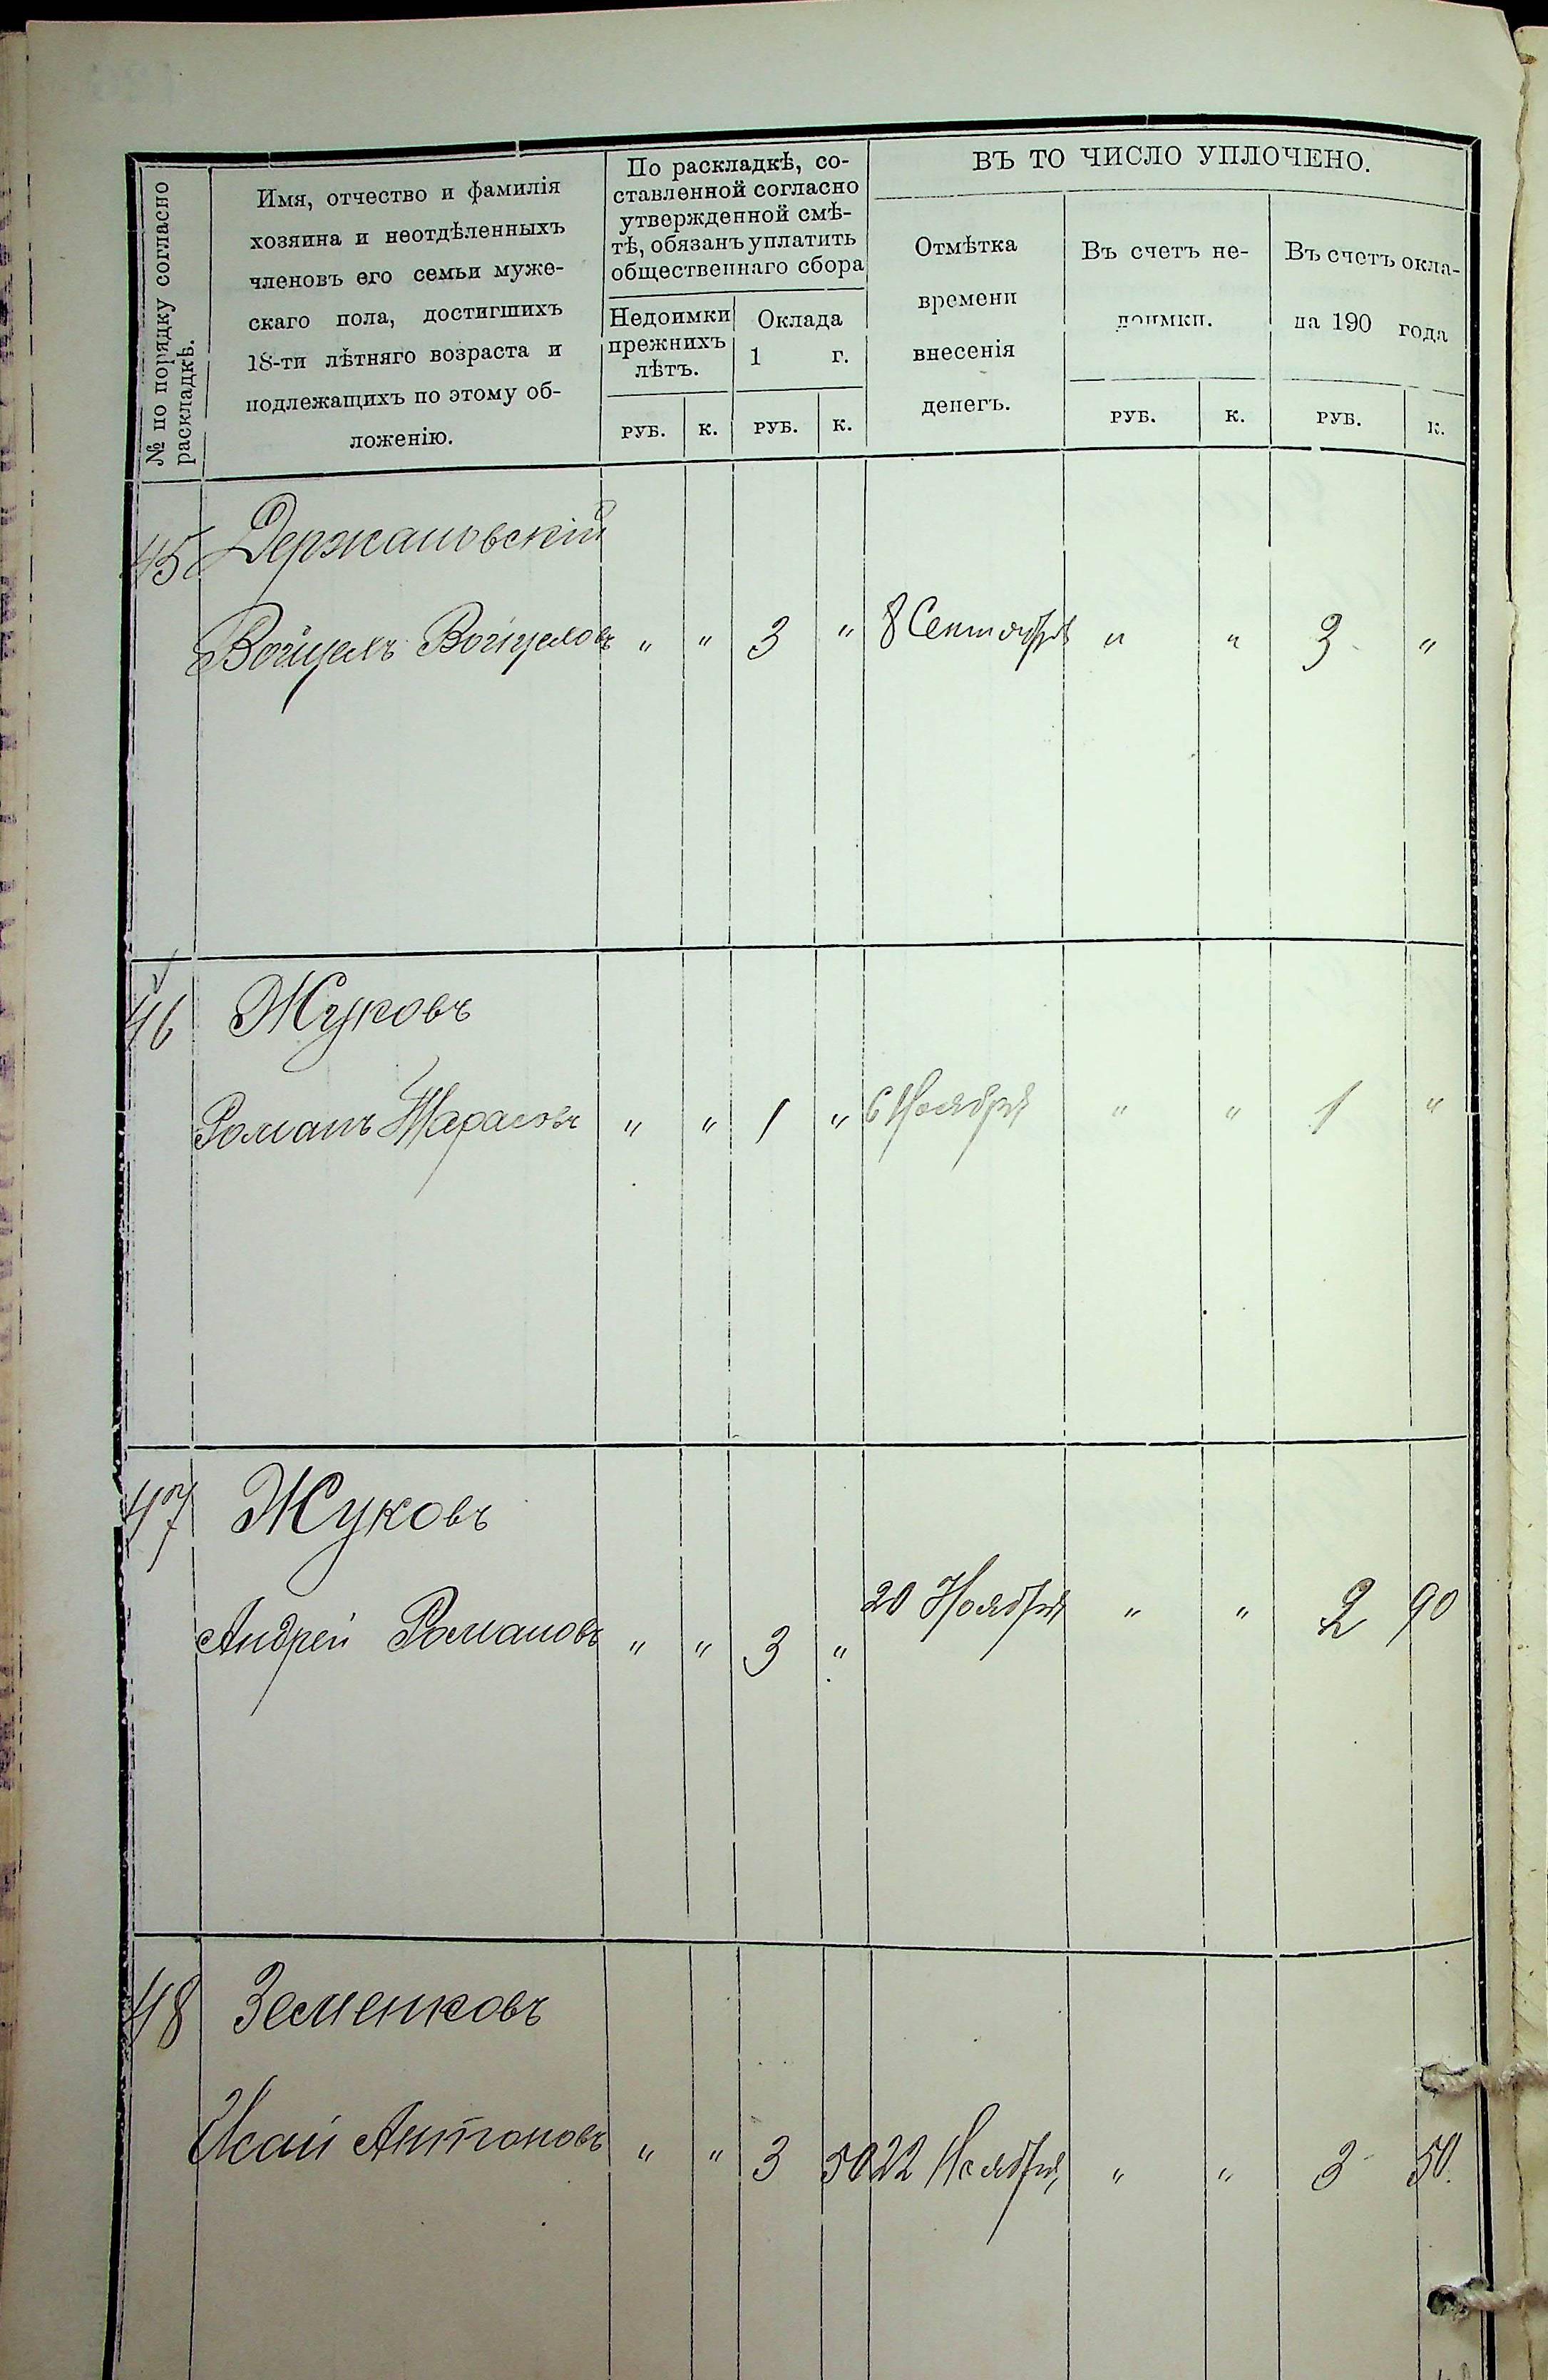 № по порядку согласно
раскладкѣ.
Имя, отчество и фамилія
хозяина и неотдѣленныхъ
членовъ его семьи муже-
скаго пола, достигшихъ
18-ти лѣтняго возраста и
подлежащихъ по этому об-
ложенію.
По раскладкѣ, со-
ставленной согласно
утвержденной смѣ-
тѣ, обязанъ уплатить
общественнаго сбора
Недоимки
прежнихъ
лѣтъ.
Оклада
1 г.
РУБ. К. РУБ. К.
ВЪ ТО ЧИСЛО УПЛОЧЕНО.
Отмѣтка
времени
внесенія
денегъ.
Въ счетъ не-
доимки.
РУБ. К.
Въ счетъ окла-
на 190 года
РУБ. К.
45 Держановскій
Войцехъ Войцеховъ " " 3 " 8 Сентября " " 3 "
46 Жуковъ
Романъ Тарасовъ " " 1 " 6 Ноября " " 1 "
47 Жуковъ
Андрей Романовъ " " 3 " 20 Ноября " " 2 90
48 Земенковъ
Исай Антоновъ " " 3 50 22 Ноября " " 3 50.